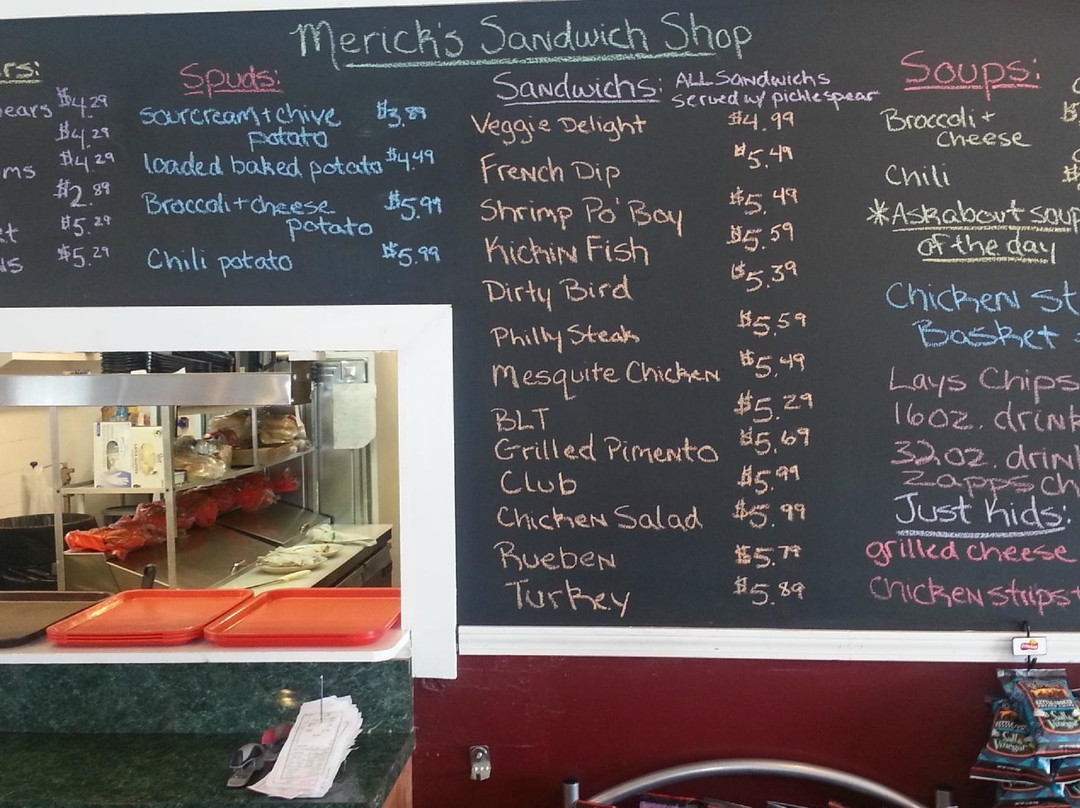 Merick's Sandwich Shop
rs:
ears $4.29
$4.29
ms $4.29
$2.89
et $5.29
ns $5.29
Spuds:
sourcream+chive $3.89
potato
loaded baked potato $4.49
Broccoli+cheese $5.99
potato
Chili potato $5.99
Sandwichs: ALL Sandwichs
served w/ pickle spear
Veggie Delight $4.99
French Dip $5.49
Shrimp Po' Boy $5.49
Kickin Fish $5.59
Dirty Bird $5.39
Philly Steak $5.59
Mesquite Chicken $5.49
BLT $5.29
Grilled Pimento $5.69
Club $5.99
Chicken Salad $5.99
Rueben $5.79
Turkey $5.89
Soups:
Broccoli+
Cheese
Chili $
*Ask about soup
of the day
Chicken st
Basket
Lays Chips
16oz. drink
32oz. drin
Zapps ch
Just Kids:
grilled cheese
Chicken strips+
Salt &
Vinegar
Salt &
Vinegar